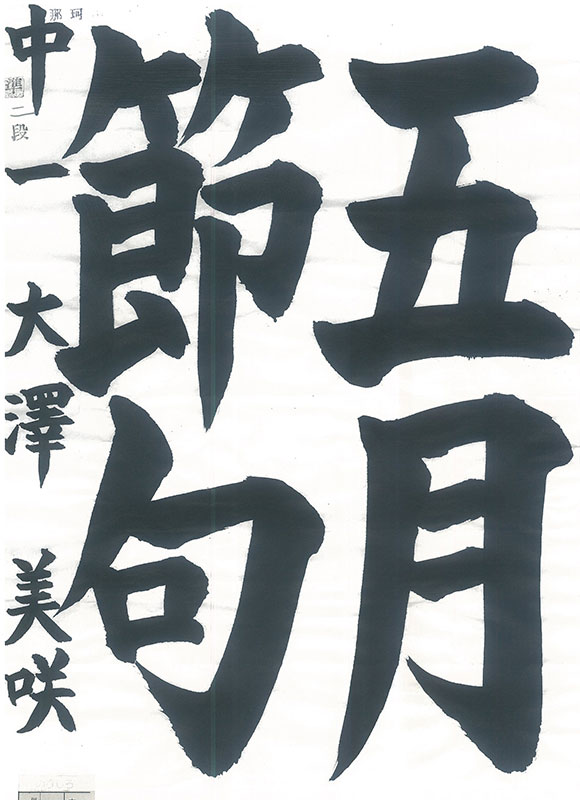 五月
節句
中一 大澤 美咲
準二段
那珂